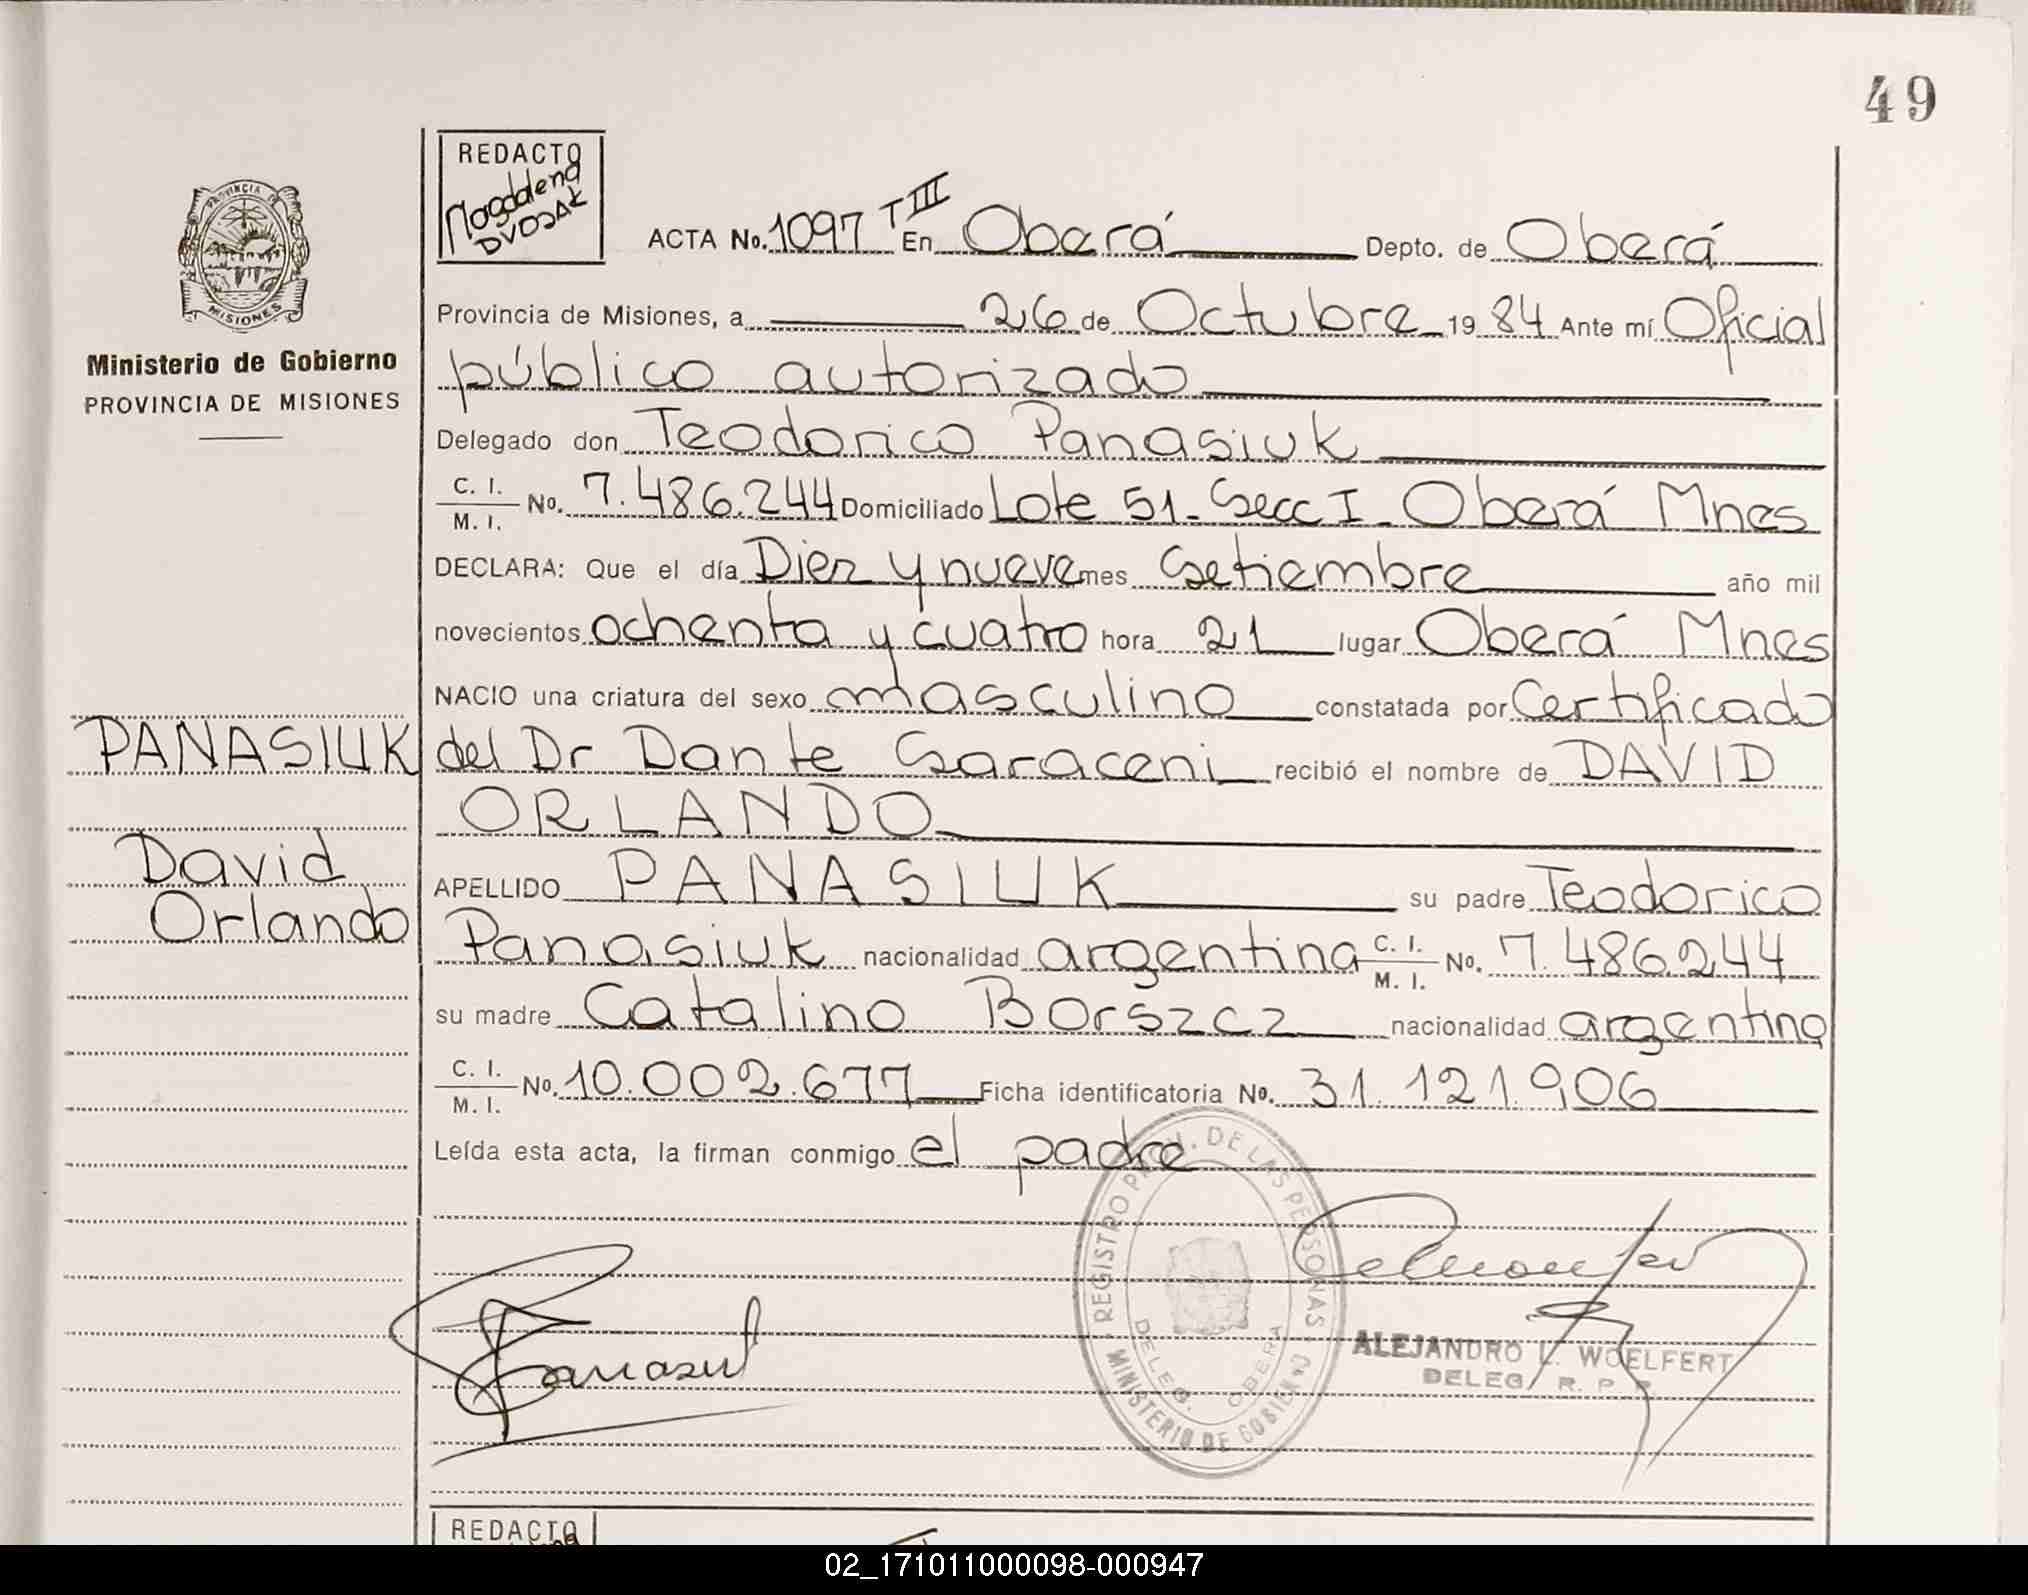 49
REDACTO
Magdalena
DVOJAK
PROVINCIA DE
MISIONES
Ministerio de Gobierno
PROVINCIA DE MISIONES
ACTA No. 1097 T III En Oberá Depto. de Oberá
Provincia de Misiones, a 26 de Octubre 19 84 Ante mí Oficial
público autorizado
Delegado don Teodorico Panasiuk
C. I. / M. I. No. 7.486.244 Domiciliado Lote 51 - Secc I - Oberá Mnes
DECLARA: Que el día Diez y nueve mes Setiembre año mil
novecientos ochenta y cuatro hora 21 lugar Oberá Mnes
NACIO una criatura del sexo masculino constatada por Certificado
del Dr Dante Saraceni recibió el nombre de DAVID
ORLANDO
APELLIDO PANASIUK su padre Teodorico
Panasiuk nacionalidad argentina C. I. / M. I. No. 7.486.244
su madre Catalina Borszcz nacionalidad argentina
C. I. / M. I. No. 10.002.677 Ficha identificatoria No. 31.121.906
Leída esta acta, la firman conmigo el padre
PANASIUK
David
Orlando
REGISTRO PROV. DE LAS PERSONAS
MINISTERIO DE GOBIERNO
DELEG. OBERA
ALEJANDRO L. WOELFERT
DELEG. R. P. P.
REDACTO
02_171011000098-000947